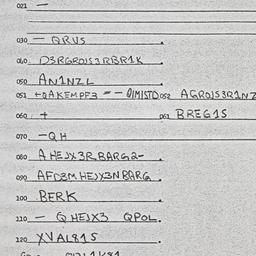 021 —
030 — QRVS
040 D3RGROJS3RBR1K
050 AN1NZL
051 +QAKEMPF3 = - QIMISTD 052 AGROJS3R1NZ
060 + 061 BREG1S
070 —QH
080 AHEJX3RBARG2-
090 AFD3MHEJX3NBARG
100 BERK
110 — QHEJX3 QPOL.
120 XVAL81S